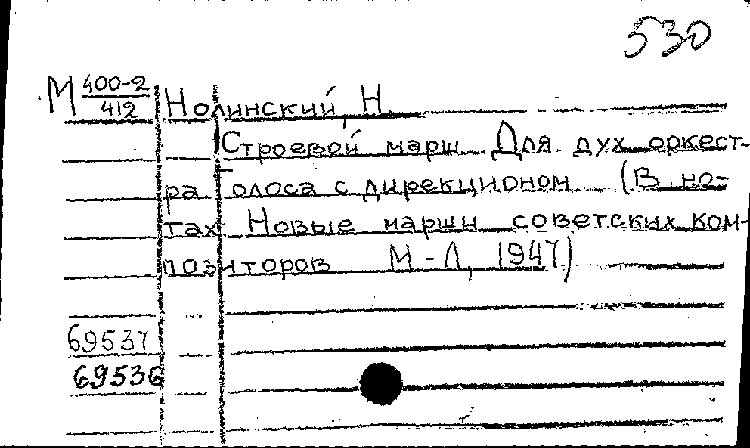 530
М 400-2/412 Нолинский, Н.
Строевой марш Для дух оркест-
ра Голоса с дирекционом (В но-
тах Новые марши советских ком-
позиторов М-Л, 1947)
69537
69536